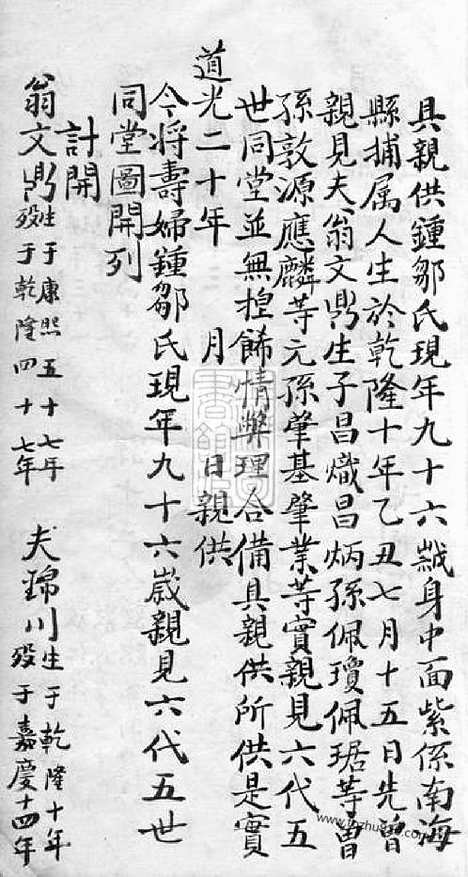 具親供鍾鄒氏現年九十六歲身中面紫係南海
縣捕属人生於乾隆十年乙丑七月十五日先曾
親見夫翁文鼎生子昌熾昌炳孫佩瓊佩琚等曾
孫敦源應麟等元孫肇基肇業等實親見六代五
世同堂並無揑餙情弊理合備具親供所供是實
道光二十年 月 日親供
今将壽婦鍾鄒氏現年九十六歲親見六代五世
同堂圖開列
計開
翁文鼎生于康熙五十七年 殁于乾隆四十七年 夫錦川生于乾隆十年 殁于嘉慶十四年